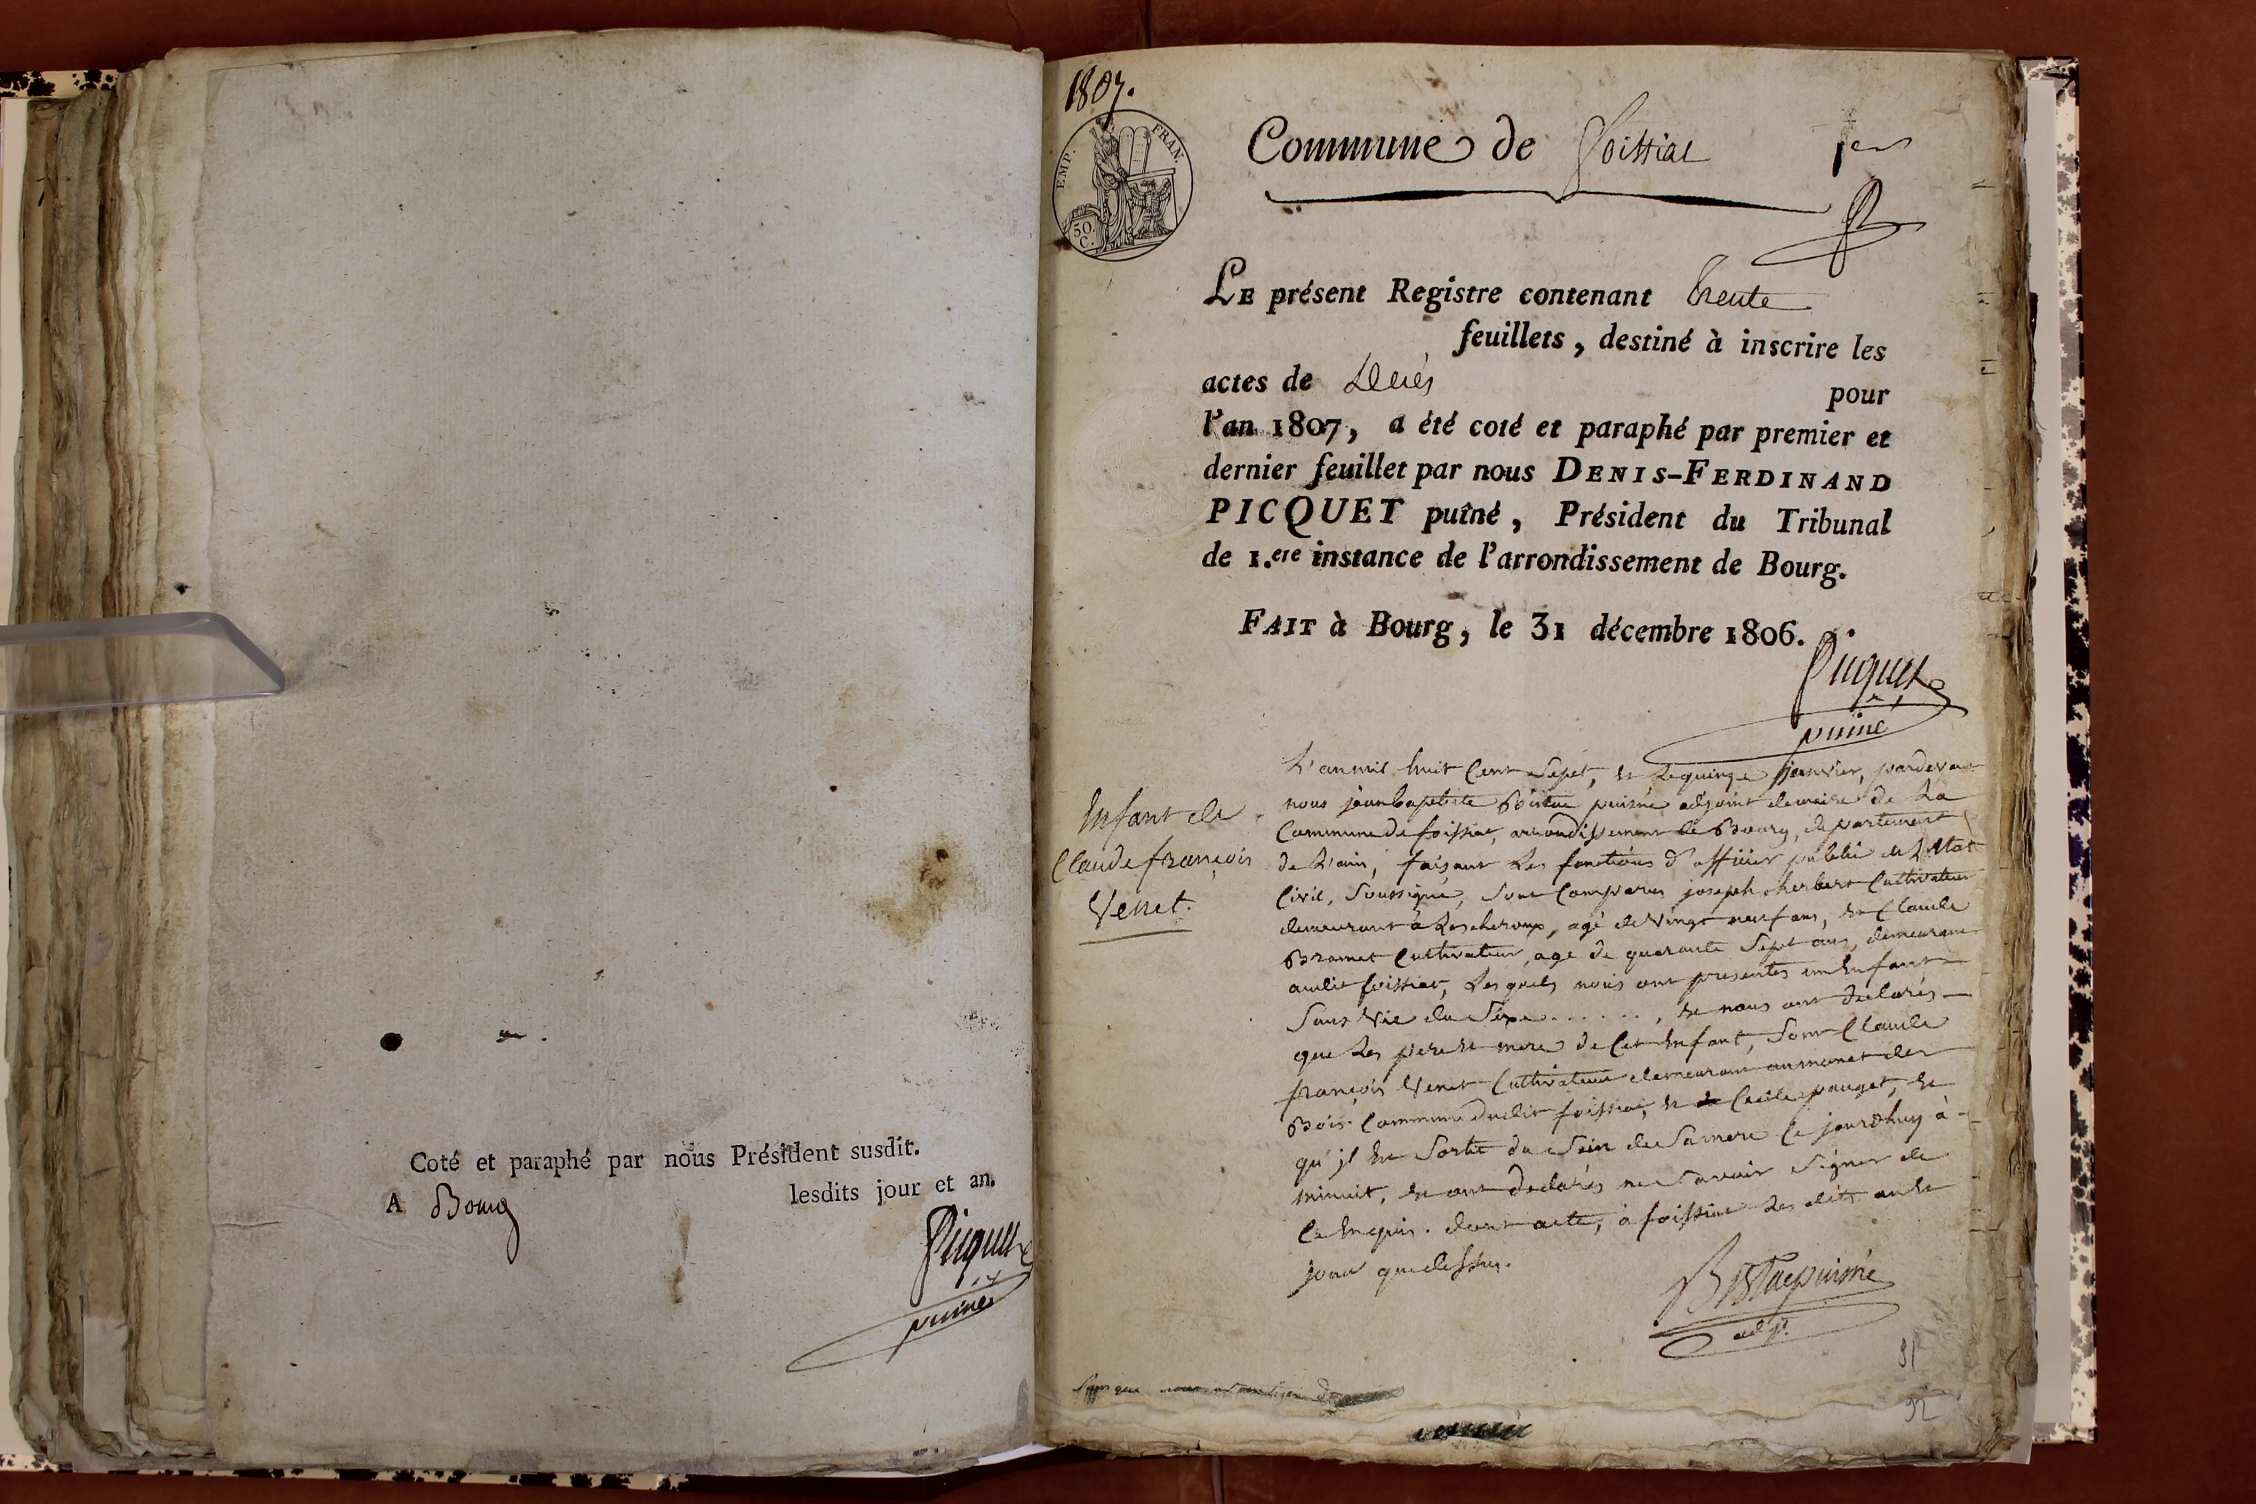 Coté et paraphé par nous Président susdit.
A Bourg lesdits jour et an.
Picquet
puiné
1807.
EMP. FRAN.
50. C.
Commune de foissiat 1er
LE présent Registre contenant trente
feuillets, destiné à inscrire les
actes de Décès pour
l'an 1807, a été coté et paraphé par premier et
dernier feuillet par nous DENIS-FERDINAND
PICQUET puîné, Président du Tribunal
de 1.ere instance de l'arrondissement de Bourg.
FAIT à Bourg, le 31 décembre 1806.
Picquet
puiné
Enfant de
Claude françois
Venet.
L'an mil huit Cent Sept, et le quinze janvier, pardevant
nous jean baptiste puisné adjoint demaire de La
Commune de foissiat, arrondissement de Bourg, departement
de L'ain, faisant Les fonctions d'officier public de L'état
Civil, Soussigné, Sont Comparus joseph herbert Cultivateur
demeurant à Lescheroux, agé de vingt neuf ans, et Claude
Bramet Cultivateur, agé de quarante Sept ans, demeurant
audit foissiat, Lesquels nous ont presentés un Enfant
Sans Vie du Sexe . . . . . . , et nous ont declarés
que Les pere et mere de Cet Enfant, Sont Claude
françois Venet Cultivateur demeurant au des
Bois Commune dudit foissiat, et Cecile pauget, et
qu'il Est Sortit du Sein de Sa mere Ce jourdhuy à
minuit, et ont declarés ne Savoir Signer de
Ce Enquis. dont acte, à foissiat Les dits an et
jour quedessus.
puisné
adjt.
91
92